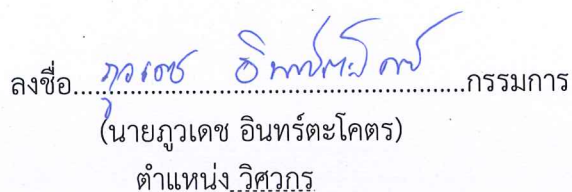 ลงชื่อ ภูวเดช อินทร์ตะโคตร กรรมการ
(นายภูวเดช อินทร์ตะโคตร)
ตำแหน่ง วิศวกร